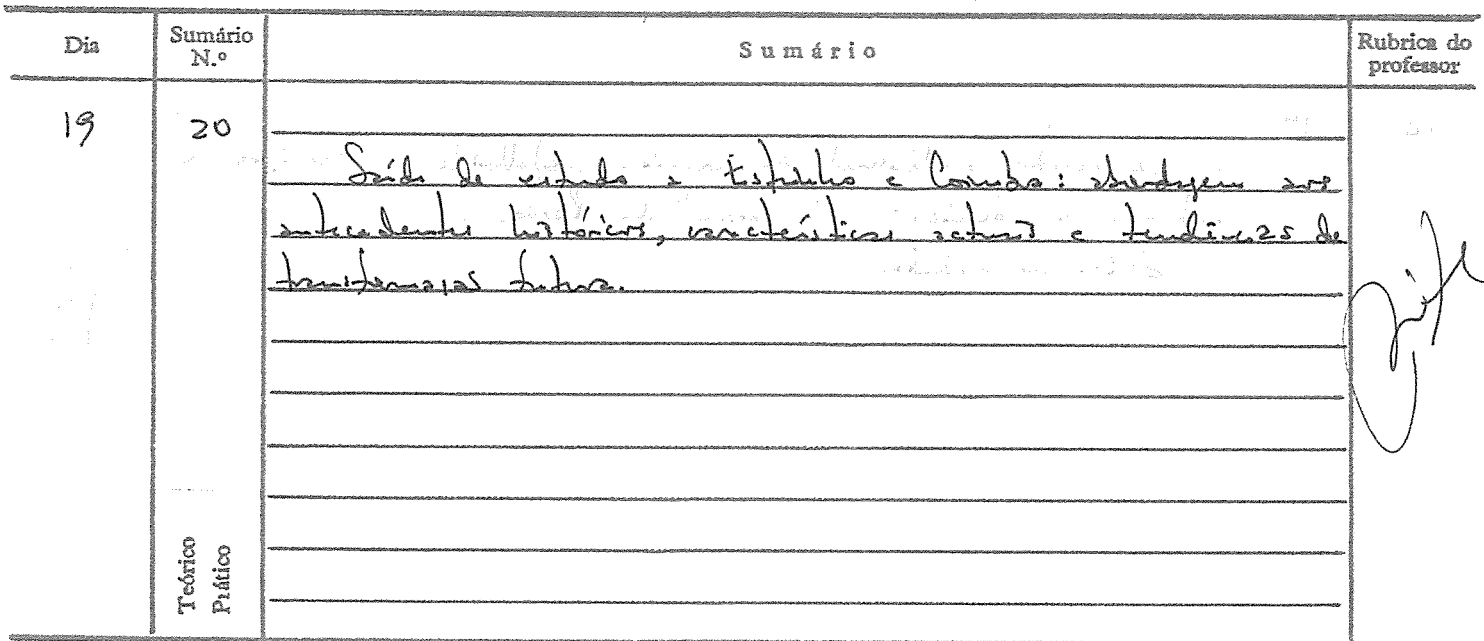 Dia
Sumário N.º
Sumário
Rubrica do professor
19
20
Saída de estudo a Espinho e Coimbra: abordagem aos
antecedentes históricos, características actuais e tendências de
transformação futura.
Teórico
Prático